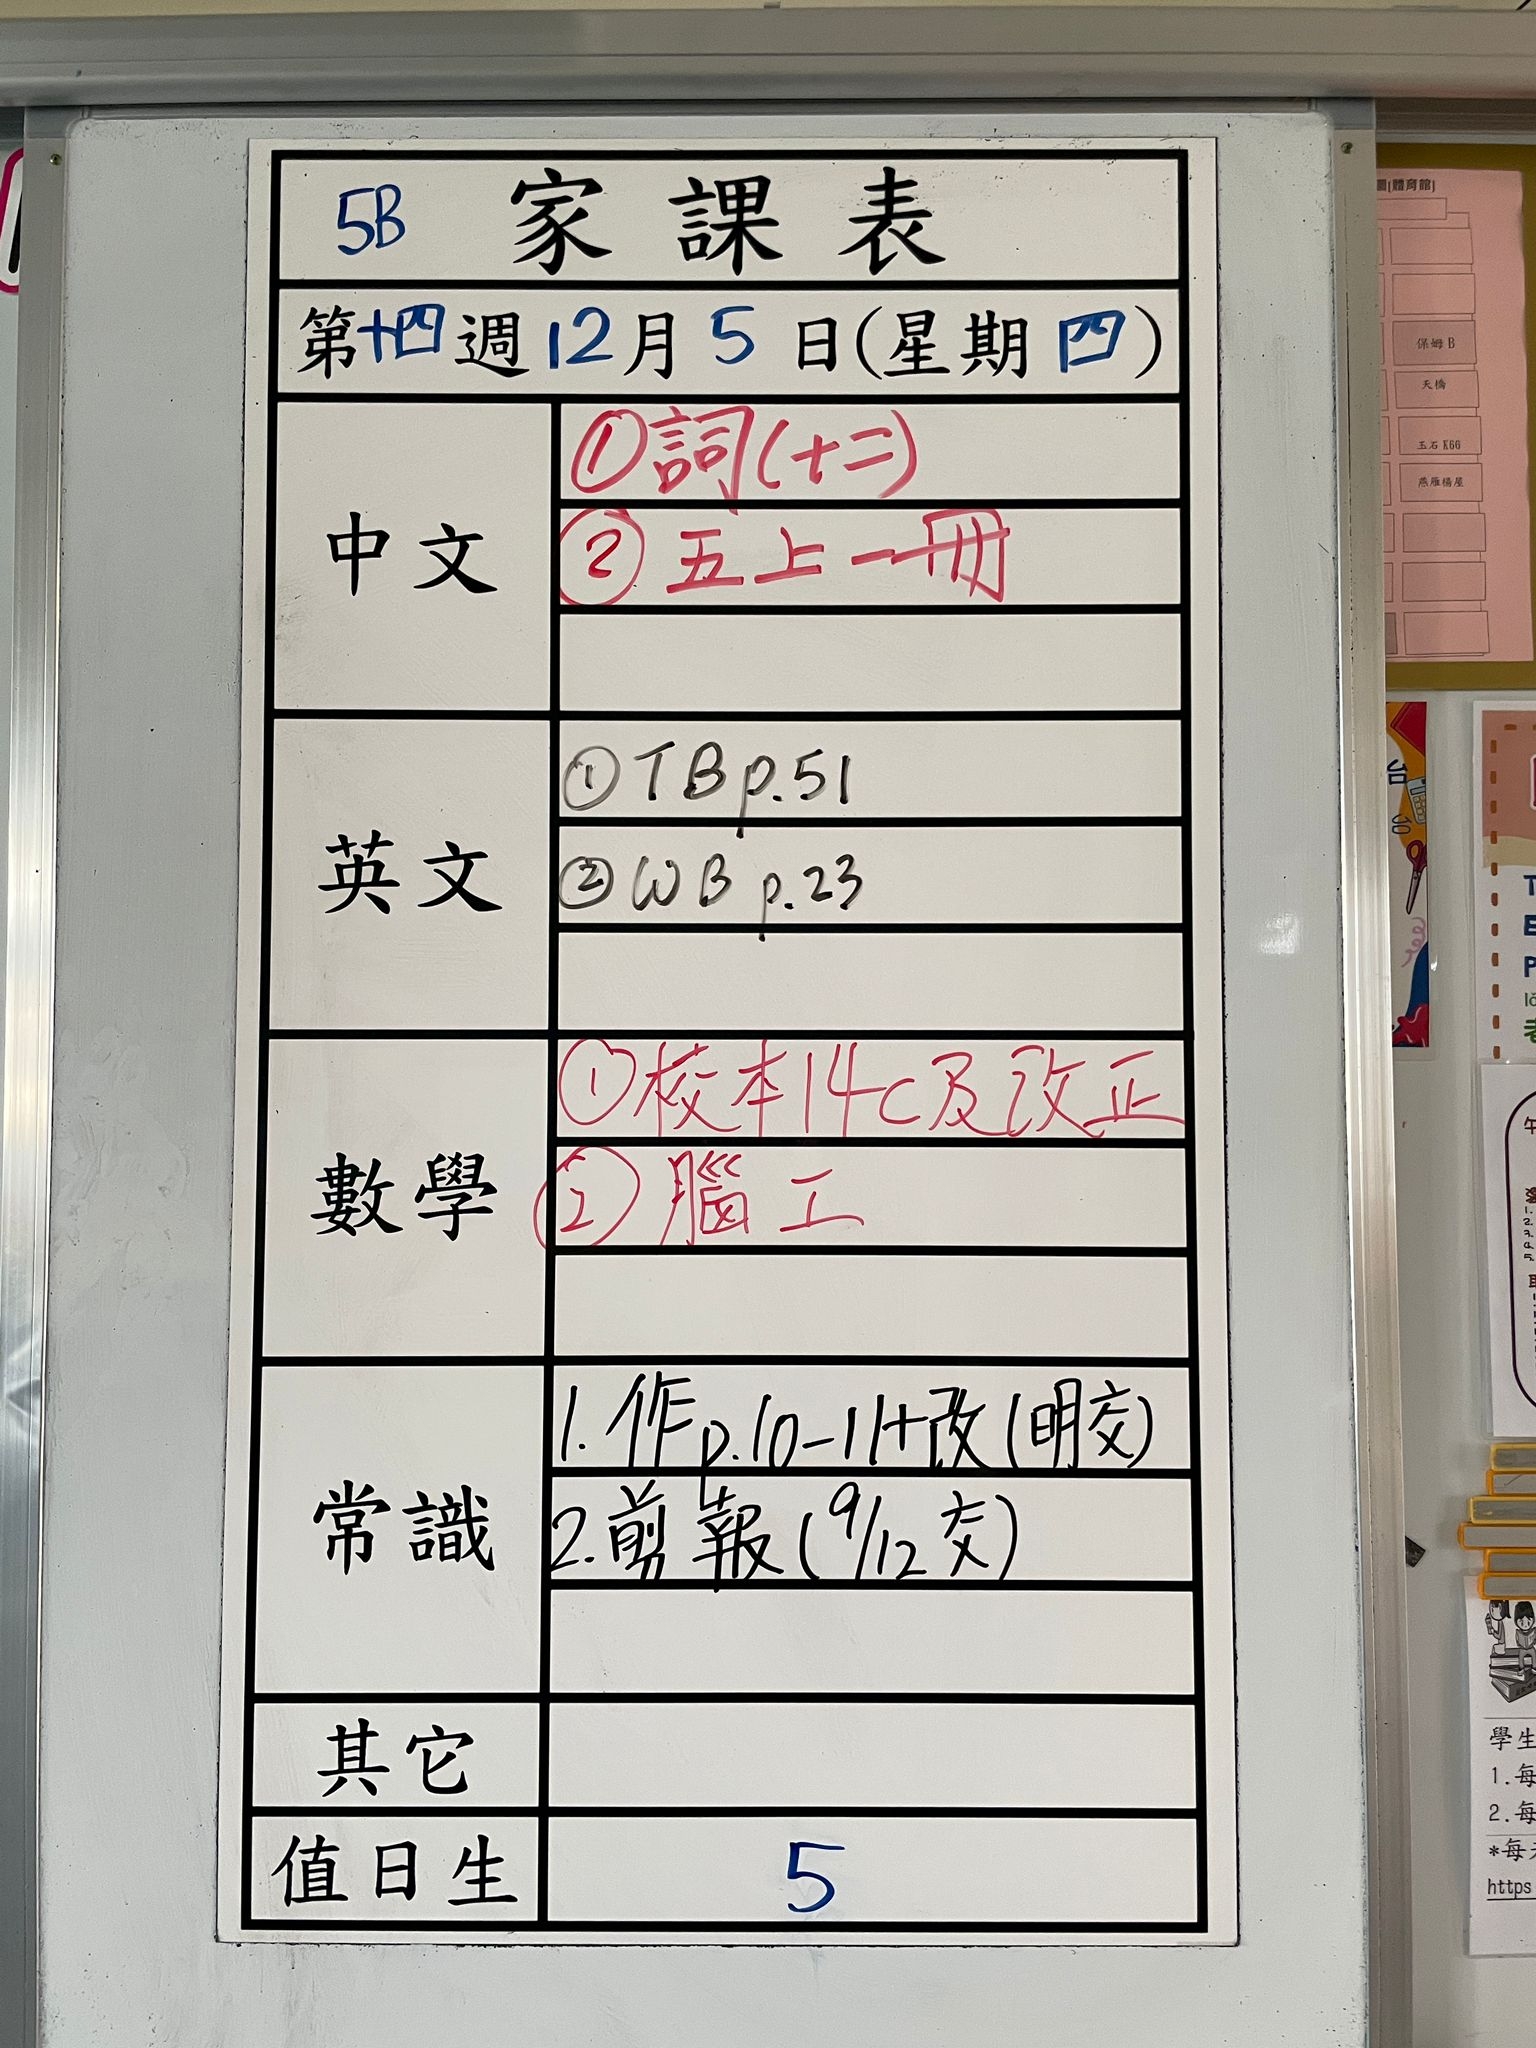 5B 家課表
第十四週12月5日(星期四)
中文
①詞(十二)
②五上一冊
英文
①TB p.51
②WB p.23
數學
①校本14C及改正
②腦工
常識
1.作p.10-11+改(明交)
2.剪報(9/12交)
其它
值日生
5
[體育館]
保姆B
天橋
玉石K66
燕雁楊屋
台
午
學生
1.每
2.每
*每
https